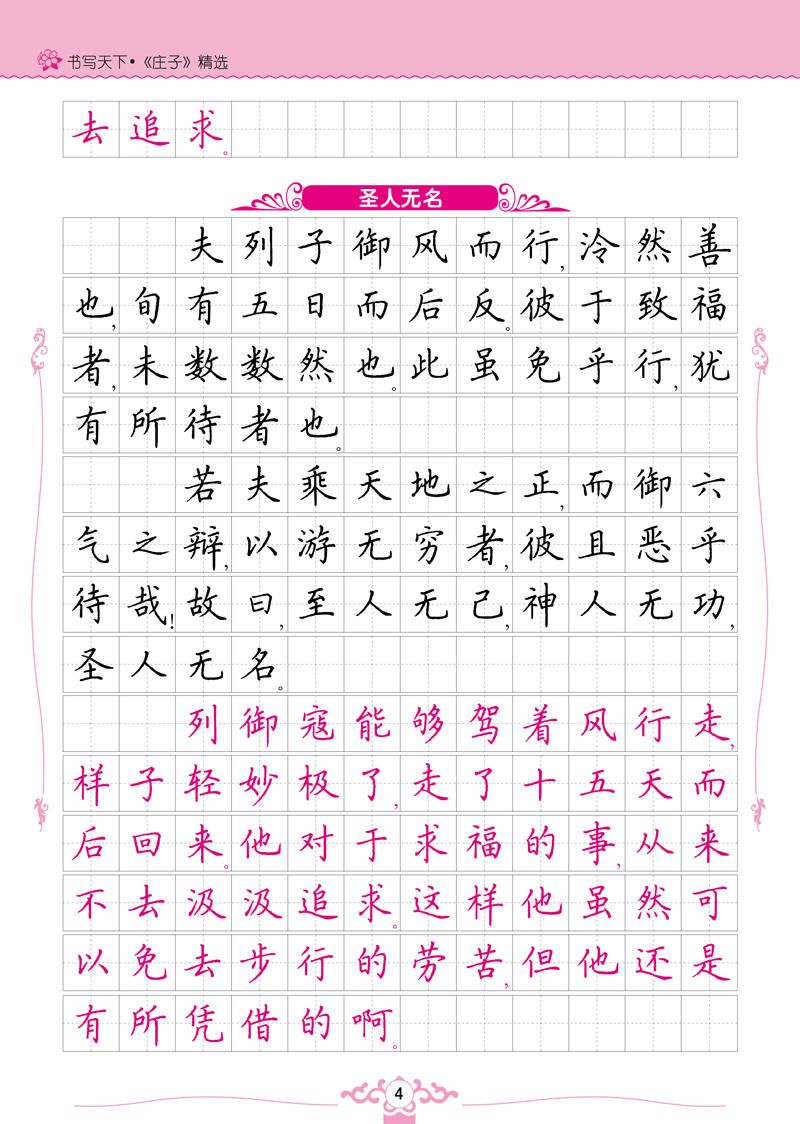 书写天下•《庄子》精选
去追求。
圣人无名
夫列子御风而行,泠然善
也,旬有五日而后反。彼于致福
者,未数数然也。此虽免乎行,犹
有所待者也。
若夫乘天地之正,而御六
气之辩,以游无穷者,彼且恶乎
待哉!故曰,至人无己,神人无功,
圣人无名。
列御寇能够驾着风行走,
样子轻妙极了,走了十五天而
后回来。他对于求福的事,从来
不去汲汲追求。这样他虽然可
以免去步行的劳苦,但他还是
有所凭借的啊。
4